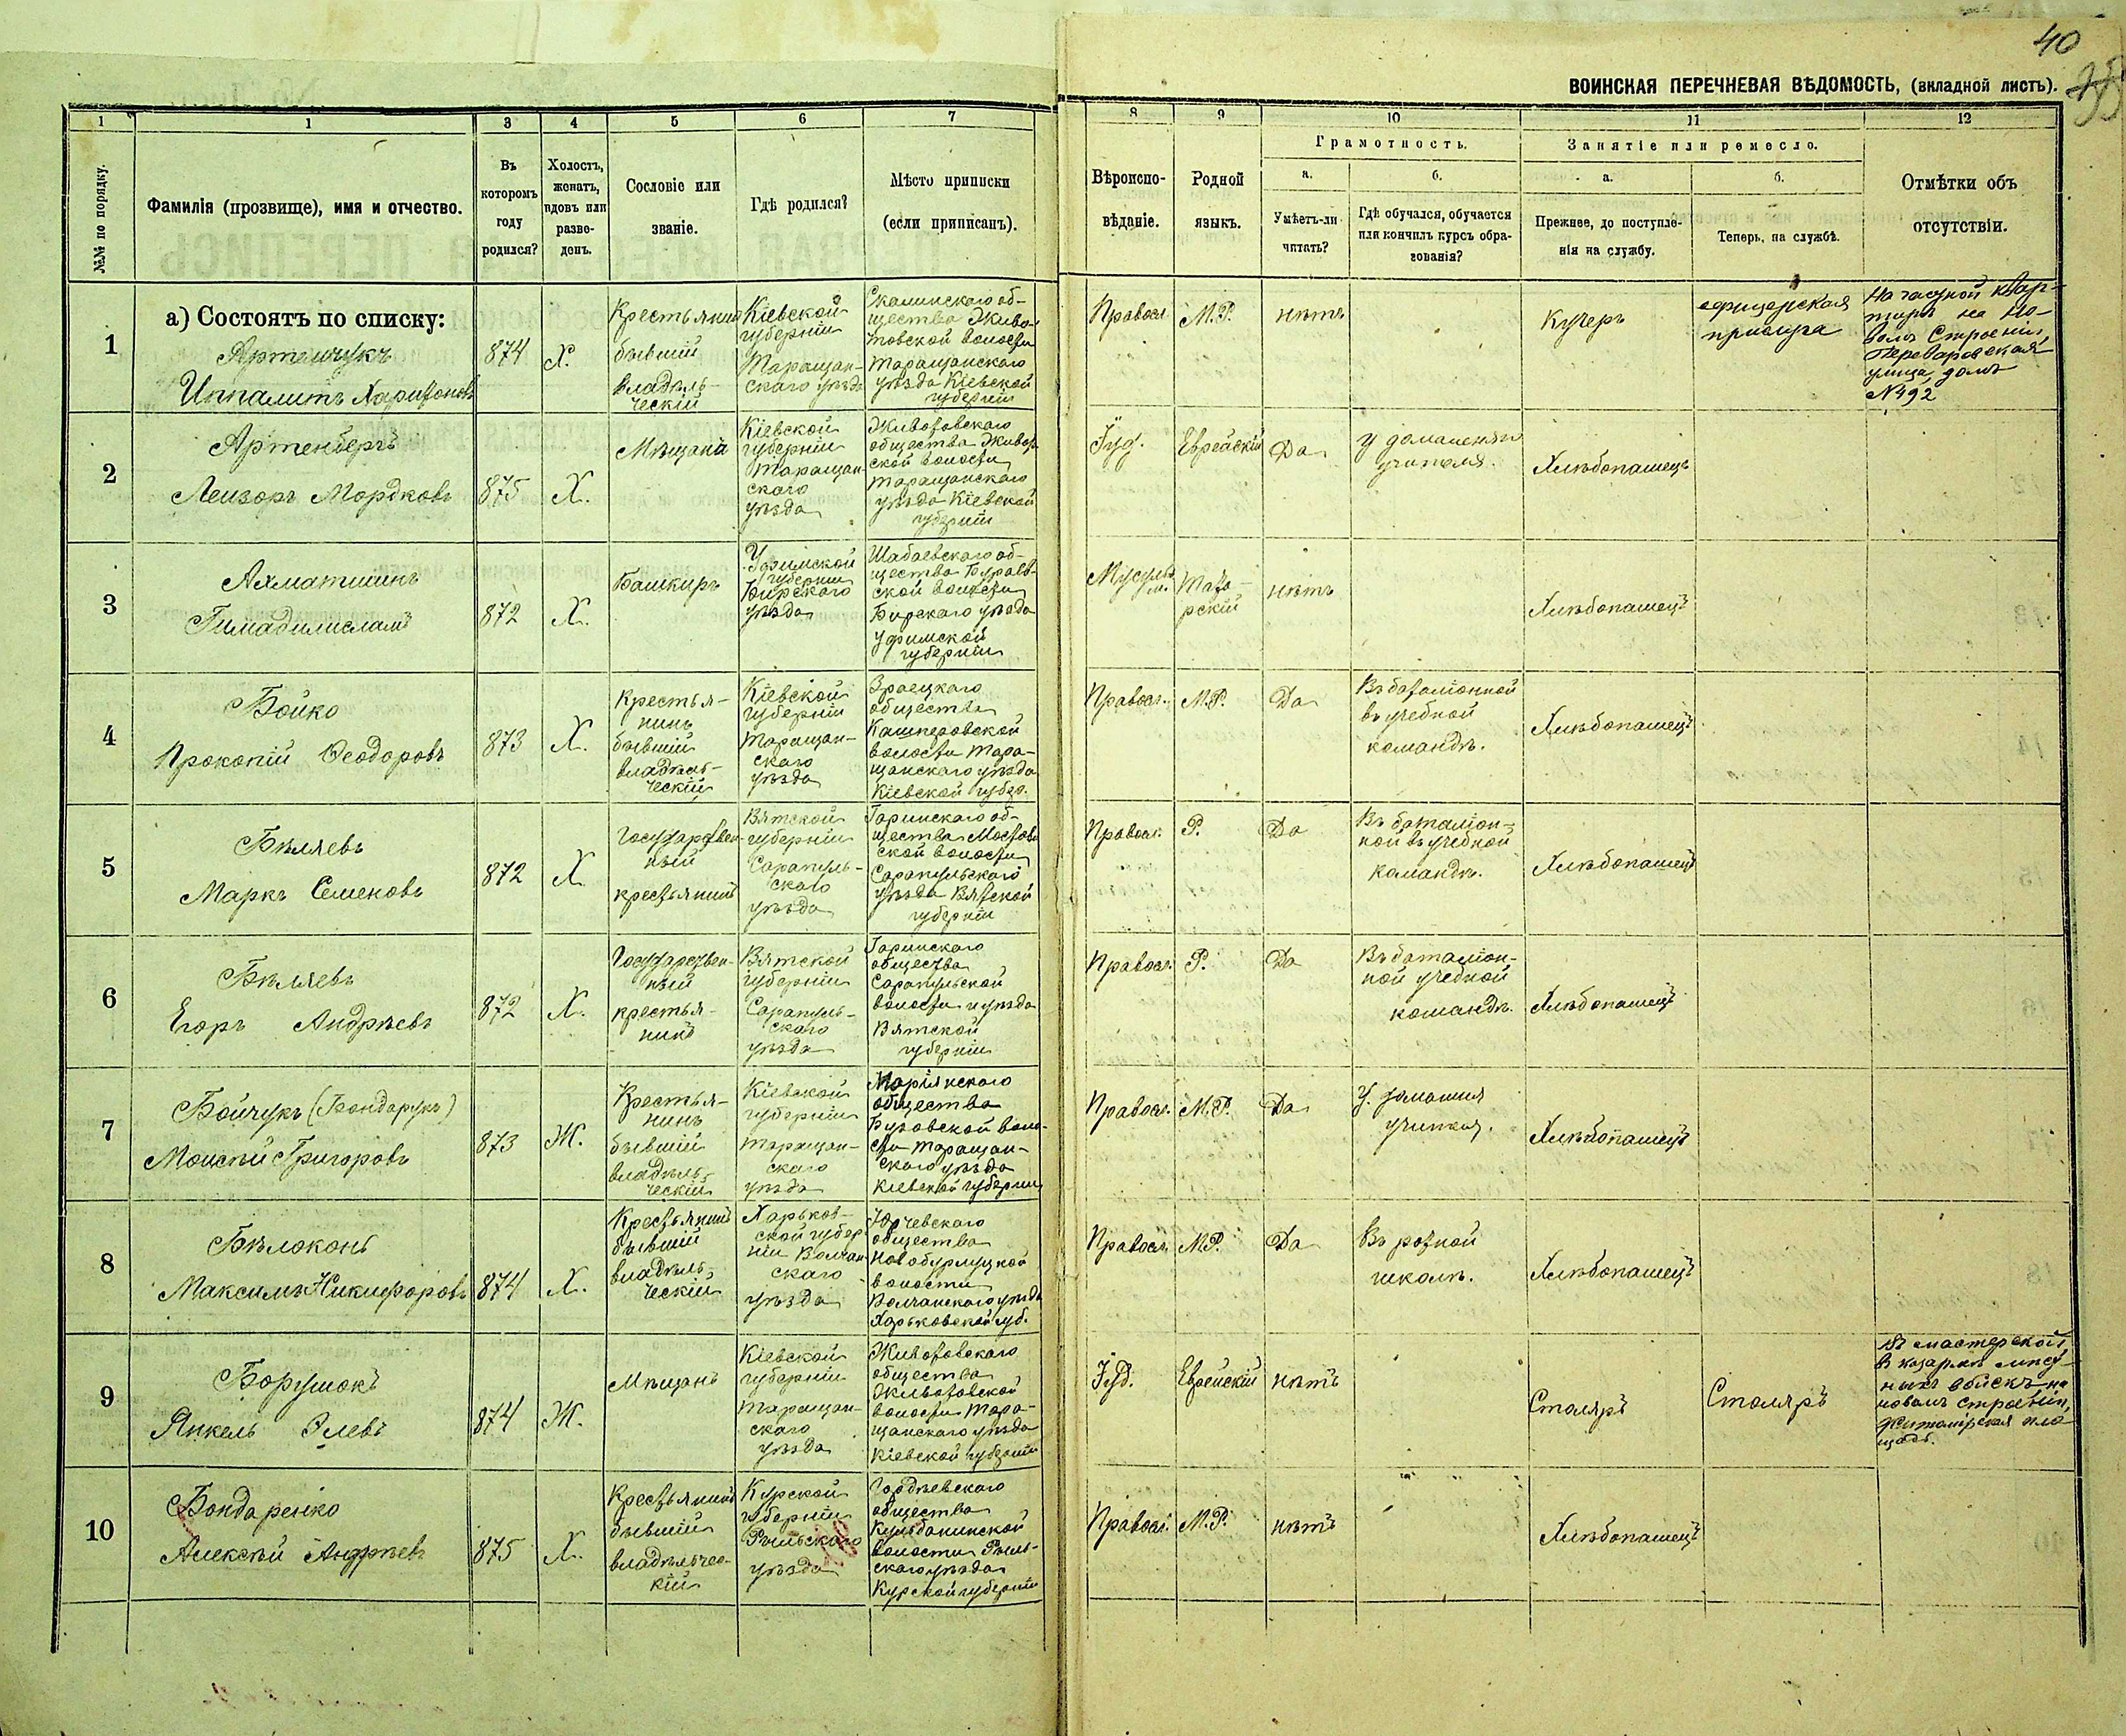 40
ВОИНСКАЯ ПЕРЕЧНЕВАЯ ВѢДОМОСТЬ, (вкладной листъ).
1
1
3
4
5
6
7
8
9
10
11
12
№№ по порядку.
Фамилія (прозвище), имя и отчество.
Въ
которомъ
году
родился?
Холостъ,
женатъ,
вдовъ или
разве-
денъ.
Сословіе или
званіе.
Гдѣ родился?
Мѣсто приписки
(если приписанъ).
Вѣроиспо-
вѣданіе.
Родной
языкъ.
Грамотность.
а.
б.
Умѣетъ-ли
читать?
Гдѣ обучался, обучается
или кончилъ курсъ обра-
зованія?
Занятіе или ремесло.
а.
б.
Прежнее, до поступле-
нія на службу.
Теперь, на службѣ.
Отмѣтки объ
отсутствіи.
а) Состоятъ по списку:
1
Артемчукъ
Иппалитъ Харитоновъ
874
Х.
Крестьянинъ
бывшій
владѣль-
ческій
Кіевской
губерніи
Таращан-
скаго уѣзда
общества Живо-
товской волости
Таращанскаго
уѣзда Кіевской
губерніи
Правосл.
М.Р.
нѣтъ
Кучеръ
офицерская
прислуга
На частной квар-
тирѣ на Но-
вомъ Строеніи,
улица, домъ
№492
2
Артенбергъ
Лейзоръ Мордковъ
875
Х.
Мѣщанинъ
Кіевской
губерніи
Таращан-
скаго
уѣзда
Животовскаго
общества Живот-
ской волости
Таращанскаго
уѣзда Кіевской
губерніи
Іуд.
Еврейскій
Да
У домашняго
учителя.
Хлѣбопашецъ
3
Ахматшинъ
Гимадилисламъ
872
Х.
Башкиръ
Уфимской
губерніи
Бирскаго
уѣзда
Шабаевскаго об-
щества Бураев-
ской волости
Бирскаго уѣзда
Уфимской
губерніи
Мусульм.
Тата-
рскій
нѣтъ
Хлѣбопашецъ
4
Бойко
Прокопій Ѳеодоровъ
873
Х.
Крестья-
нинъ
бывшій
владѣль-
ческій
Кіевской
губерніи
Таращан-
скаго
уѣзда
общества
Кашперовской
волости Тара-
щанскаго уѣзда
Кіевской губер.
Правосл.
М.Р.
Да
Въ баталіонной
въ учебной
командѣ.
Хлѣбопашецъ
5
Бѣляевъ
Маркъ Семеновъ
872
Х
Государствен-
ный
крестьянинъ
Вятской
губерніи
Сарапуль-
скаго
уѣзда
Гаринскаго об-
щества Мостов-
ской волости
Сарапульскаго
уѣзда Вятской
губерніи
Правосл.
Р.
Да
Въ баталіон-
ной въ учебной
командѣ.
Хлѣбопашецъ
6
Бѣляевъ
Егоръ Андрѣевъ
872
Х.
Государствен-
ный
крестья-
нинъ
Вятской
губерніи
Сарапуль-
скаго
уѣзда
Гаринскаго
общества
Сарапульской
волости и уѣзда
Вятской
губерніи
Правосл.
Р.
Да
Въ баталіон-
ной учебной
командѣ.
Хлѣбопашецъ
7
Бойчукъ (Бондарукъ)
Моисѣй Григоровъ
873
Ж.
Крестья-
нинъ
бывшій
владѣль-
ческій
Кіевской
губерніи
Таращан-
скаго
уѣзда
Маріянскаго
общества
Бузовской воло-
сти Таращан-
скаго уѣзда
Кіевской губерніи
Правосл.
М.Р.
Да
У домашня
учителя.
Хлѣбопашецъ
8
Бѣлоконь
Максимъ Никифоровъ
874
Х.
Крестьянинъ
бывшій
владѣль-
ческій
Харьков-
ской губер-
ніи Волчан-
скаго
уѣзда
Юрчевскаго
общества
Новобурлуцкой
волости
Волчанскаго уѣзда
Харьковской губ.
Правосл.
М.Р.
Да
Въ ротной
школѣ.
Хлѣбопашецъ
9
Борушокъ
Янкель Элевъ
874
Ж.
Мѣщанъ
Кіевской
губерніи
Таращан-
скаго
уѣзда
Животовскаго
общества
Животовской
волости Тара-
щанскаго уѣзда
Кіевской губерніи
Іуд.
Еврейскій
нѣтъ
Столяръ
Столяръ
Въ мастерской,
въ казармѣ мѣст-
ныхъ войскъ на
новомъ строеніи,
Житомірская пло-
щадь.
10
Бондаренко
Алексѣй Андрѣевъ
875
Х.
Крестьянинъ
бывшій
владѣльчес-
кій
Курской
губерніи
Рыльскаго
уѣзда
Гордѣевскаго
общества
Кульбакинской
волости Рыль-
скаго уѣзда
Курской губерніи
Правосл.
М.Р.
нѣтъ
Хлѣбопашецъ